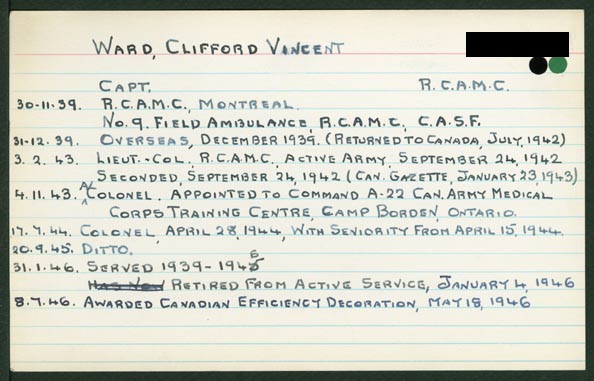 WARD, CLIFFORD VINCENT
CAPT. R.C.A.M.C.
30-11-39. R.C.A.M.C., MONTREAL.
No. 9. FIELD AMBULANCE, R.C.A.M.C., C.A.S.F.
31-12.39. OVERSEAS, DECEMBER 1939. (RETURNED TO CANADA, JULY, 1942)
3.2.43. LIEUT.-COL., R.C.A.M.C., ACTIVE ARMY, SEPTEMBER 24, 1942
SECONDED, SEPTEMBER 24, 1942 (CAN. GAZETTE, JANUARY 23, 1943)
4.11.43. A/COLONEL. APPOINTED TO COMMAND A-22 CAN. ARMY MEDICAL
CORPS TRAINING CENTRE, CAMP BORDEN, ONTARIO.
17.7.44. COLONEL, APRIL 28, 1944, WITH SENIORITY FROM APRIL 15, 1944.
20.9.45. DITTO.
31.1.46. SERVED 1939-1946
HAS NOW RETIRED FROM ACTIVE SERVICE, JANUARY 4, 1946
8.7.46. AWARDED CANADIAN EFFICIENCY DECORATION, MAY 18, 1946